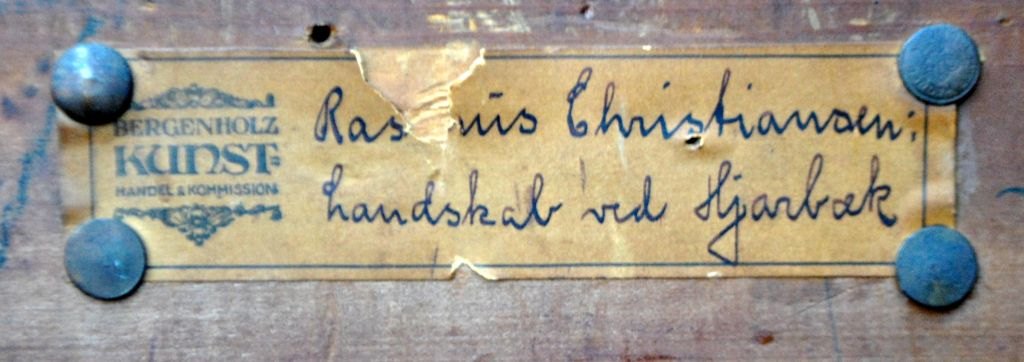 BERGENHOLZ
KUNST=
HANDEL & KOMMISSION
Rasmus Christiansen:
Landskab ved Hjarbæk